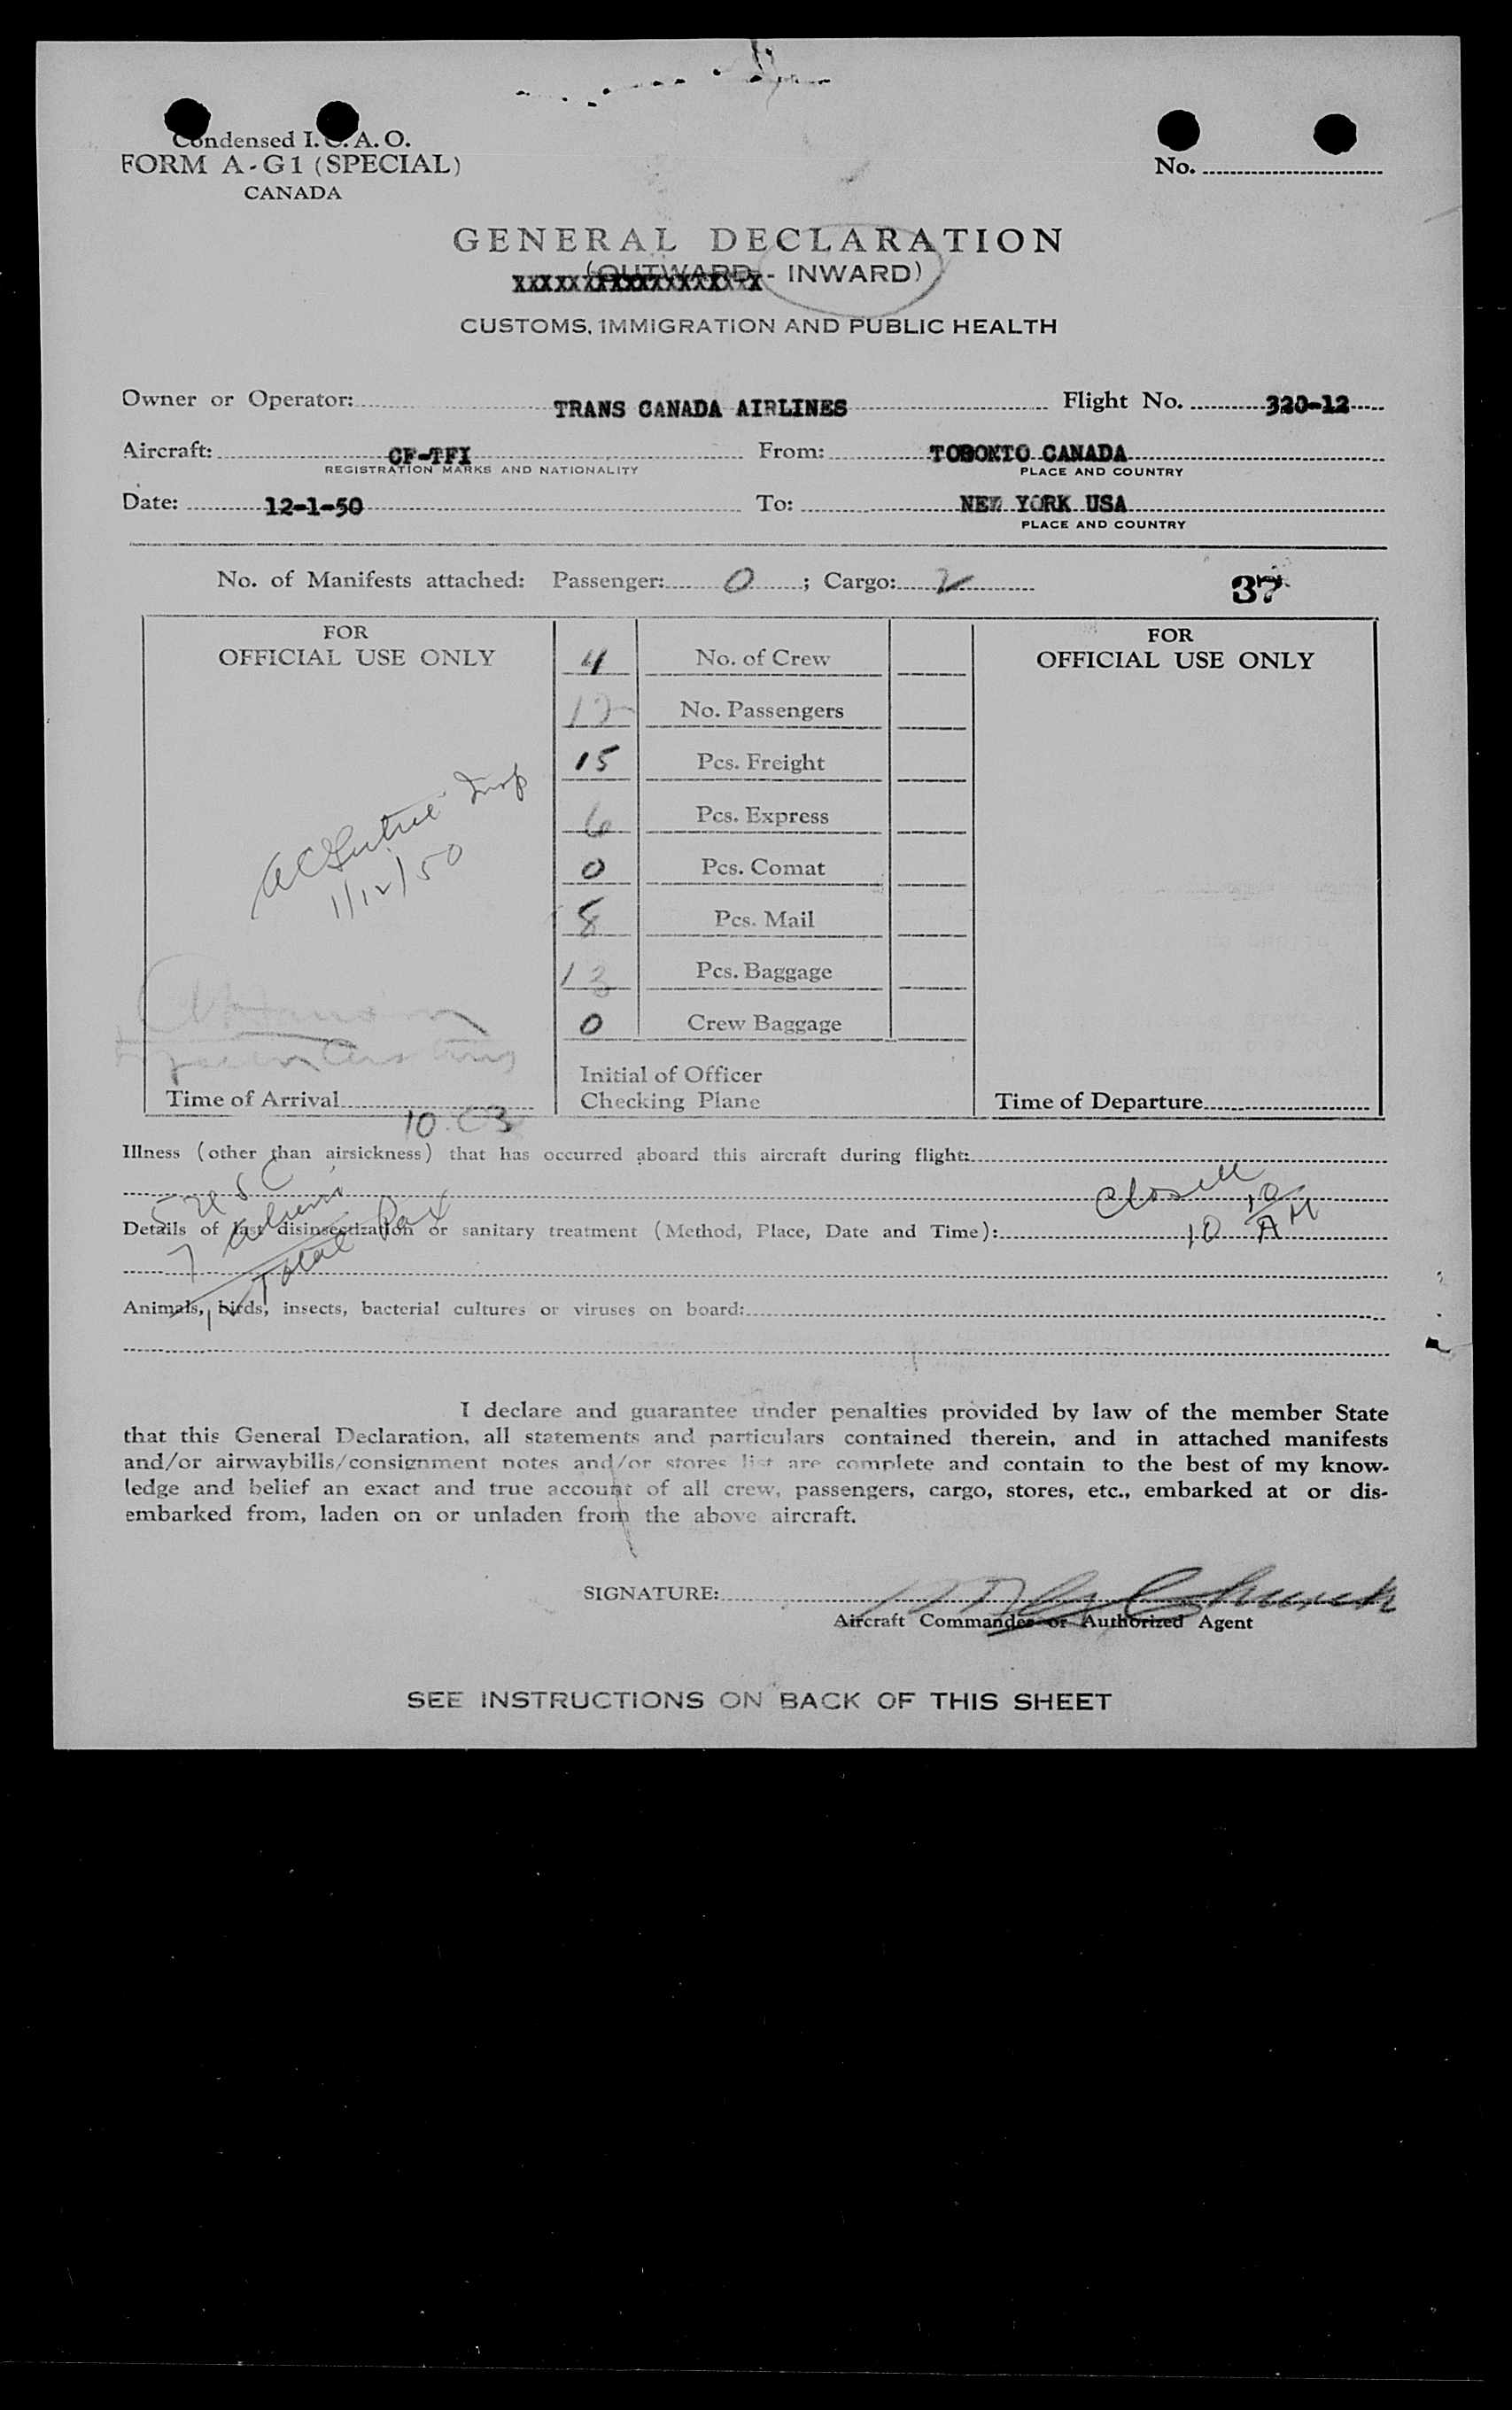 Condensed I. C. A. O.
FORM A-G1 (SPECIAL)
CANADA
No.
GENERAL DECLARATION
(OUTWARD - INWARD)
CUSTOMS, IMMIGRATION AND PUBLIC HEALTH
Owner or Operator: TRANS CANADA AIRLINES Flight No. 320-12
Aircraft: CF-TFI From: TORONTO CANADA
REGISTRATION MARKS AND NATIONALITY PLACE AND COUNTRY
Date: 12-1-50 To: NEW YORK USA
PLACE AND COUNTRY
No. of Manifests attached: Passenger: 0 ; Cargo: 2 37
FOR
OFFICIAL USE ONLY
4 No. of Crew
12 No. Passengers
15 Pcs. Freight
6 Pcs. Express
0 Pcs. Comat
8 Pcs. Mail
13 Pcs. Baggage
0 Crew Baggage
Insp
1/12/50
Time of Arrival 10 03
Initial of Officer
Checking Plane
FOR
OFFICIAL USE ONLY
Time of Departure
Illness (other than airsickness) that has occurred aboard this aircraft during flight:
5 USC
7 Aliens
Total Pax
Details of last disinsectization or sanitary treatment (Method, Place, Date and Time):
10 10 AM
Animals, birds, insects, bacterial cultures or viruses on board:
I declare and guarantee under penalties provided by law of the member State
that this General Declaration, all statements and particulars contained therein, and in attached manifests
and/or airwaybills/consignment notes and/or stores list are complete and contain to the best of my know-
ledge and belief an exact and true account of all crew, passengers, cargo, stores, etc., embarked at or dis-
embarked from, laden on or unladen from the above aircraft.
SIGNATURE:
Aircraft Commander or Authorized Agent
SEE INSTRUCTIONS ON BACK OF THIS SHEET